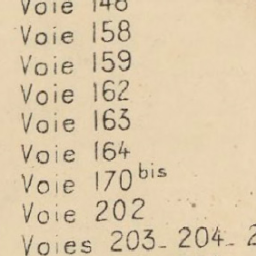 Voie 148
Voie 158
Voie 159
Voie 162
Voie 163
Voie 164
Voie 170 bis
Voie 202
Voies 203_ 204_